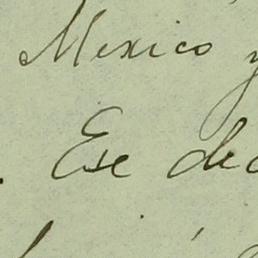 Mexico y
. Ese dec